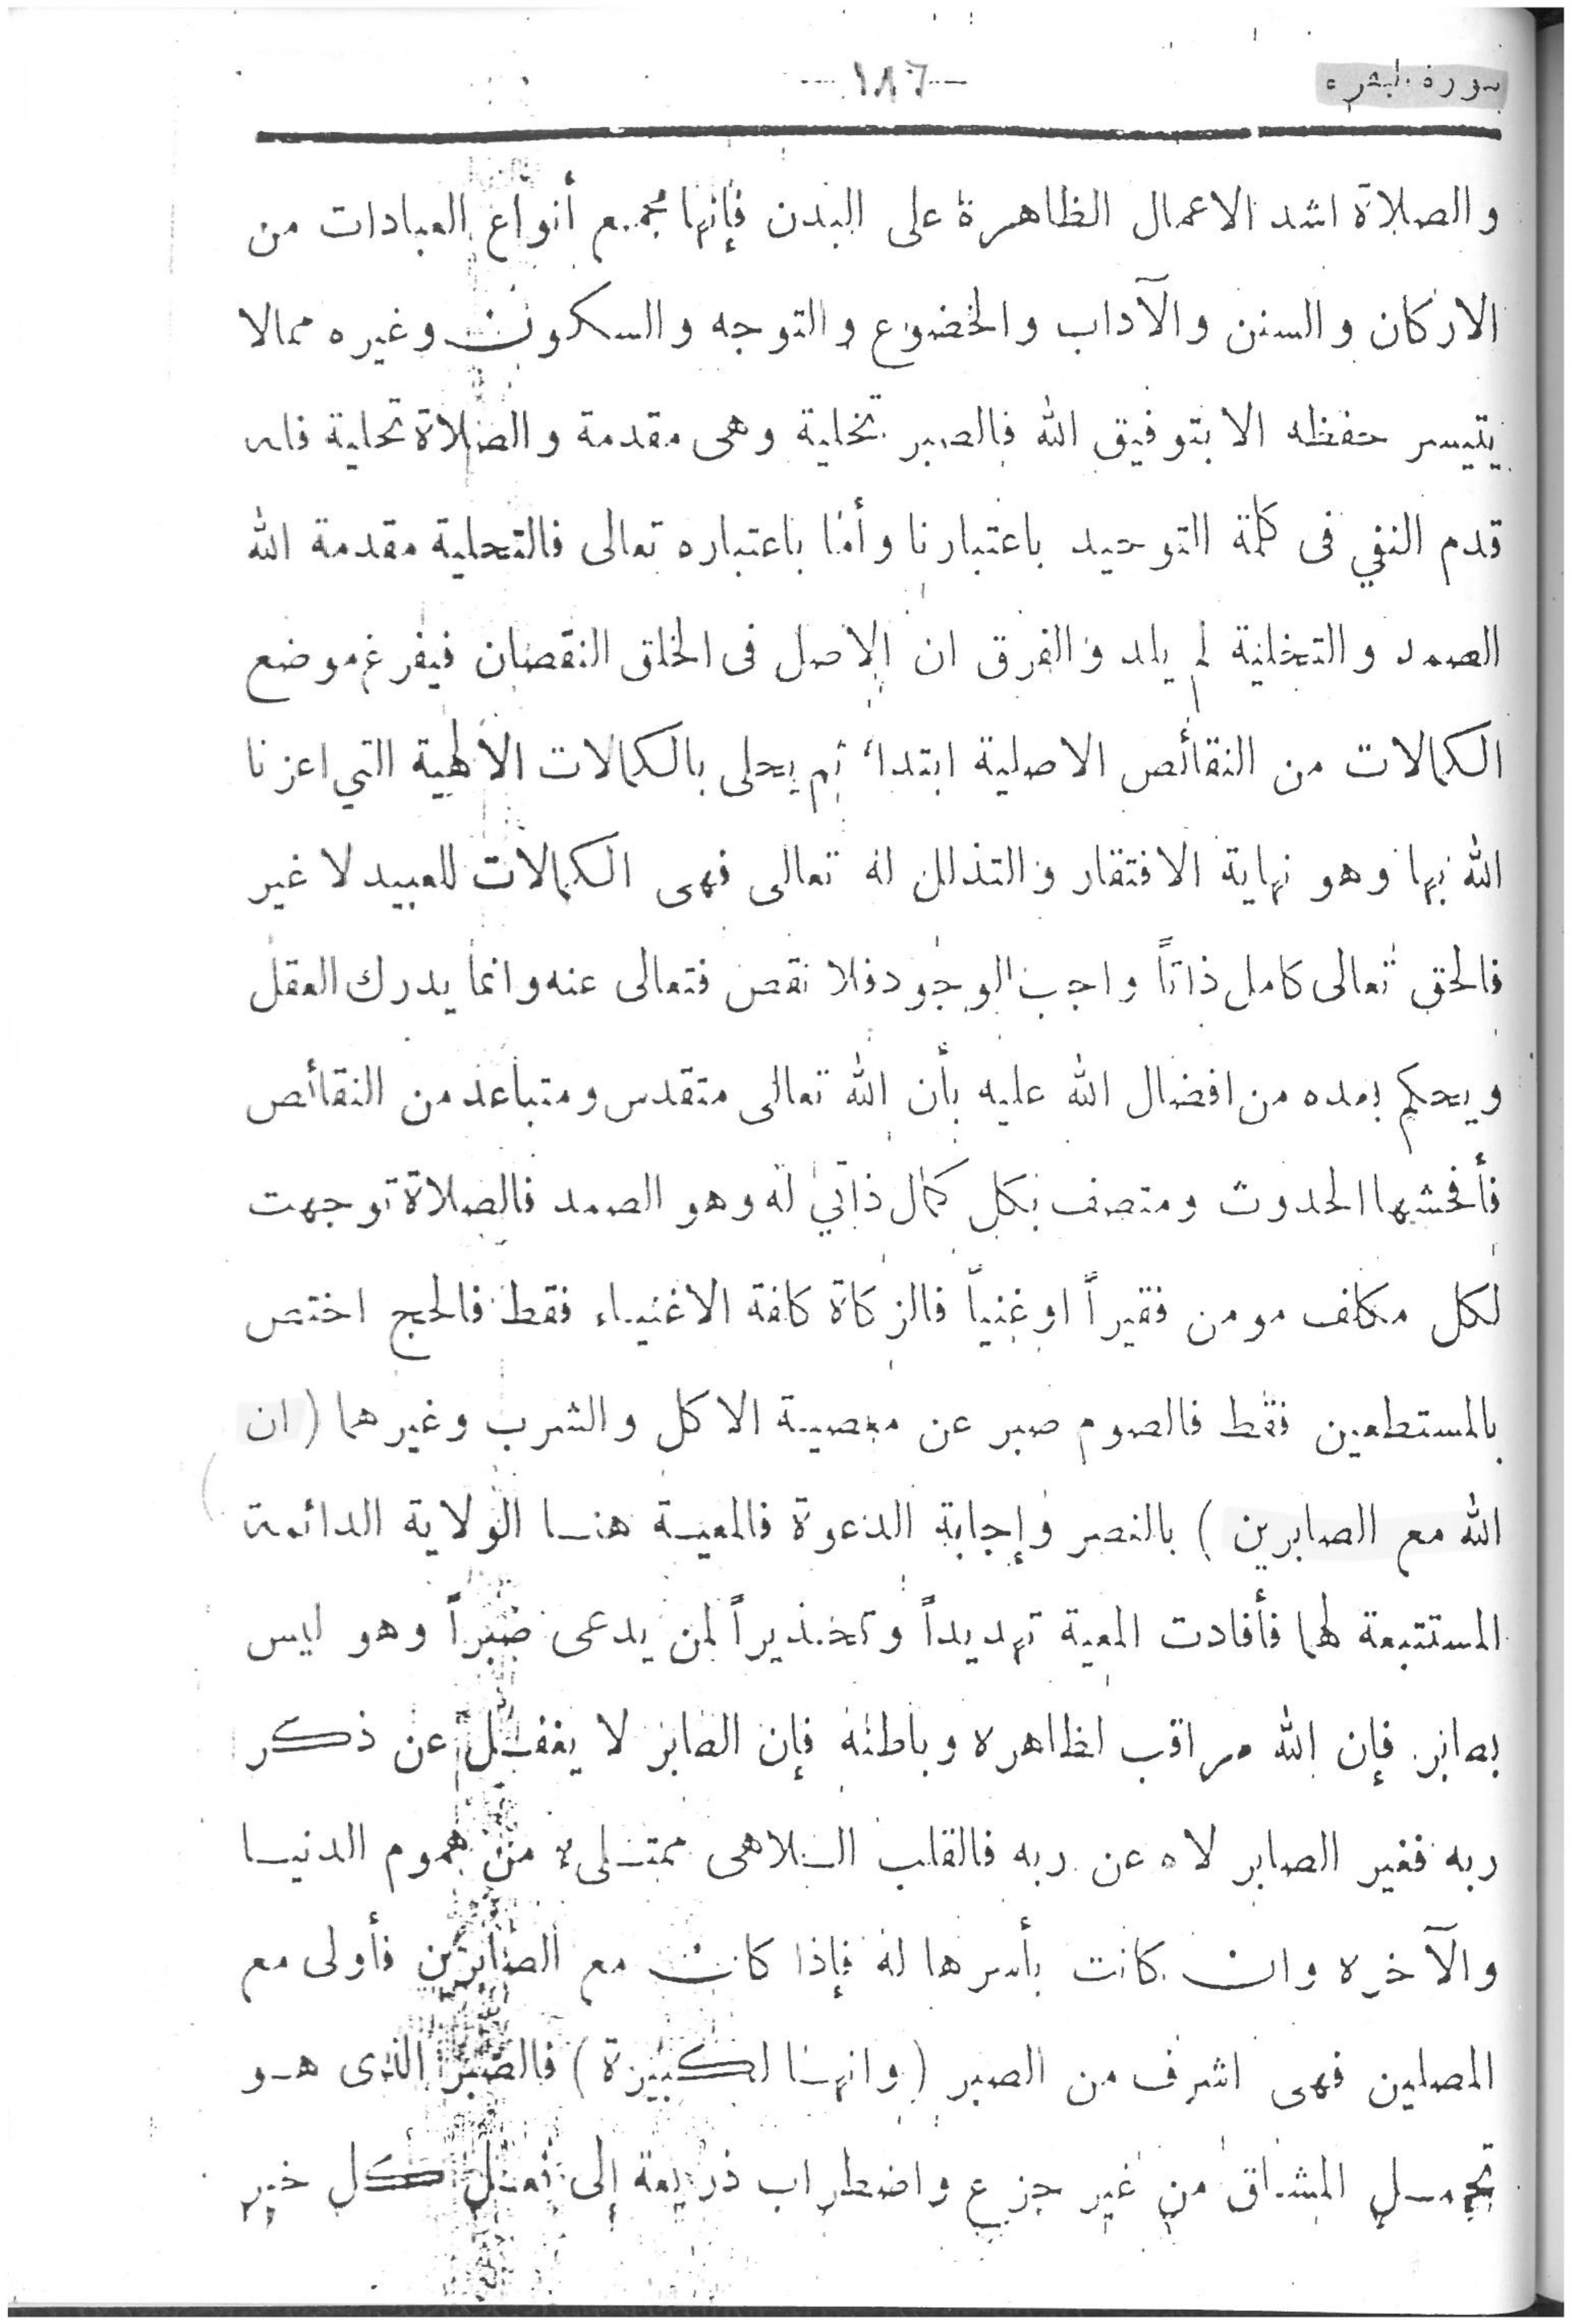 سورة البقره
—١٨٦—
والصلاة اشد الاعمال الظاهرة على البدن فإنها مجمع أنواع العبادات من
الاركان والسنن والآداب والخضوع والتوجه والسكون وغيره ممالا
يتيسر حفظه الا بتوفيق الله فالصبر تخلية وهى مقدمة والصلاة تحلية
قدم النفي فى كلمة التوحيد باعتبارنا وأما باعتباره تعالى فالتحلية مقدمة الله
الصمد والتخلية لم يلد والفرق ان الاصل فى الخلق النقصان فيفرغ موضع
الكمالات من النقائص الاصلية ابتداء ثم يحلى بالكمالات الالهية التي اعزنا
الله بها وهو نهاية الافتقار والتذلل له تعالى فهى الكمالات للعبيد لا غير
فالحق تعالى كامل ذاتاً واجب الوجود فلا نقص فتعالى عنه وانما يدرك العقل
ويحكم بمده من افضال الله عليه بأن الله تعالى متقدس ومتباعد من النقائص
فأفحشها الحدوث ومتصف بكل كمال ذاتي له وهو الصمد فالصلاة توجهت
لكل مكلف مومن فقيراً اوغنياً فالزكاة كافة الاغنياء فقط فالحج اختص
بالمستطعين فقط فالصوم صبر عن معصية الاكل والشرب وغيرهما (ان
الله مع الصابرين) بالنصر وإجابة الدعوة فالمعية هنا الولاية الدائمة
المستتبعة لهما فأفادت المعية تهديداً وتحذيراً لمن يدعى صبراً وهو ليس
بصابر فإن الله مراقب لظاهره وباطنه فإن الصابر لا يغفل عن ذكر
ربه فغير الصابر لاه عن ربه فالقلب اللاهى ممتلىء من هموم الدنيا
والآخره وان كانت بأسرها له فإذا كان مع الصابرين فأولى مع
المصلين فهى اشرف من الصبر (وانها لكبيرة) فالصبر الذى هو
تحمل المشاق من غير جزع واضطراب ذريعة إلى فعل كل خير